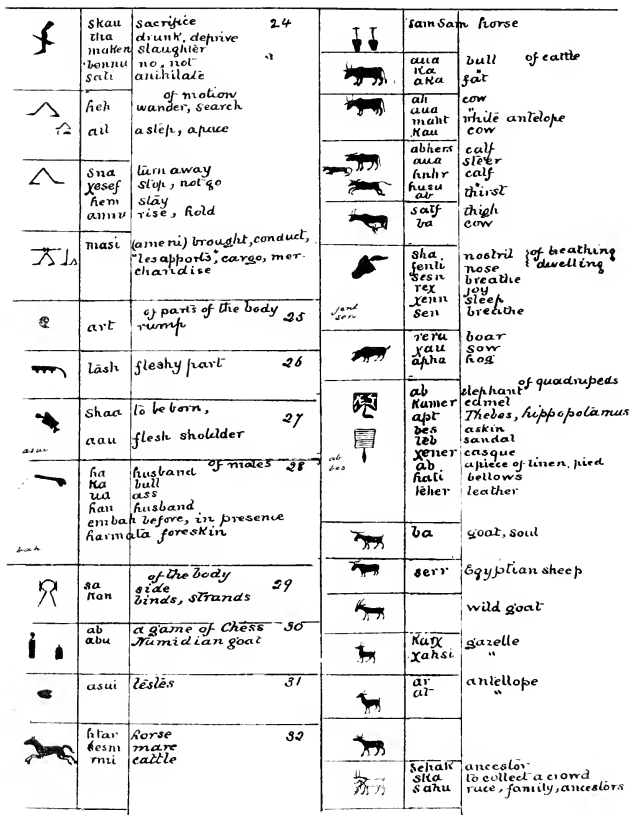 skau sacrifice 24
tha drunk, deprive
maken slaughter
bennu no, not
sati anihilate
of motion
heh wander, search
ail a step, apace
sna turn away
χesef stop, not go
hem stay
annu rise, hold
masi (ameni) brought, conduct,
"les apports", cargo, mer-
chandise
of parts of the body 25
art rump
tāsh fleshy part 26
shaa to be born, 27
aau flesh shoulder
asui
of males 28
ha husband
ka bull
ua ass
han husband
embah before, in presence
harmata foreskin
bah
of the body 29
sa side
kon binds, strands
ab a game of Chess 30
abu Numidian goat
asui testes 31
htar horse 32
hesm mare
rmi cattle
SamSam horse
aua bull of cattle
Ka "
aka fat
ah cow
aua "
maht white antelope
Kau cow
abhers calf
aua steer
hnhr calf
husu "
ab thirst
satf thigh
ba cow
sha nostril { of breathing
fenti nose { dwelling
sesn breathe
rex joy
χenn sleep
sen breathe
fent
sen
reru boar
χau sow
apha hog
of quadrupeds
ab elephant
Kamer camel
apt Thebes, hippopotamus
bes a skin
teb sandal
χener casque
ab a piece of linen, pied
hati bellows
teher leather
ab
bes
ba goat, soul
serr Egyptian sheep
wild goat
Karχ gazelle
χahsi "
ar antellope
at "
Sehak ancestor
ska to collect a crowd
Sahu race, family, ancestors